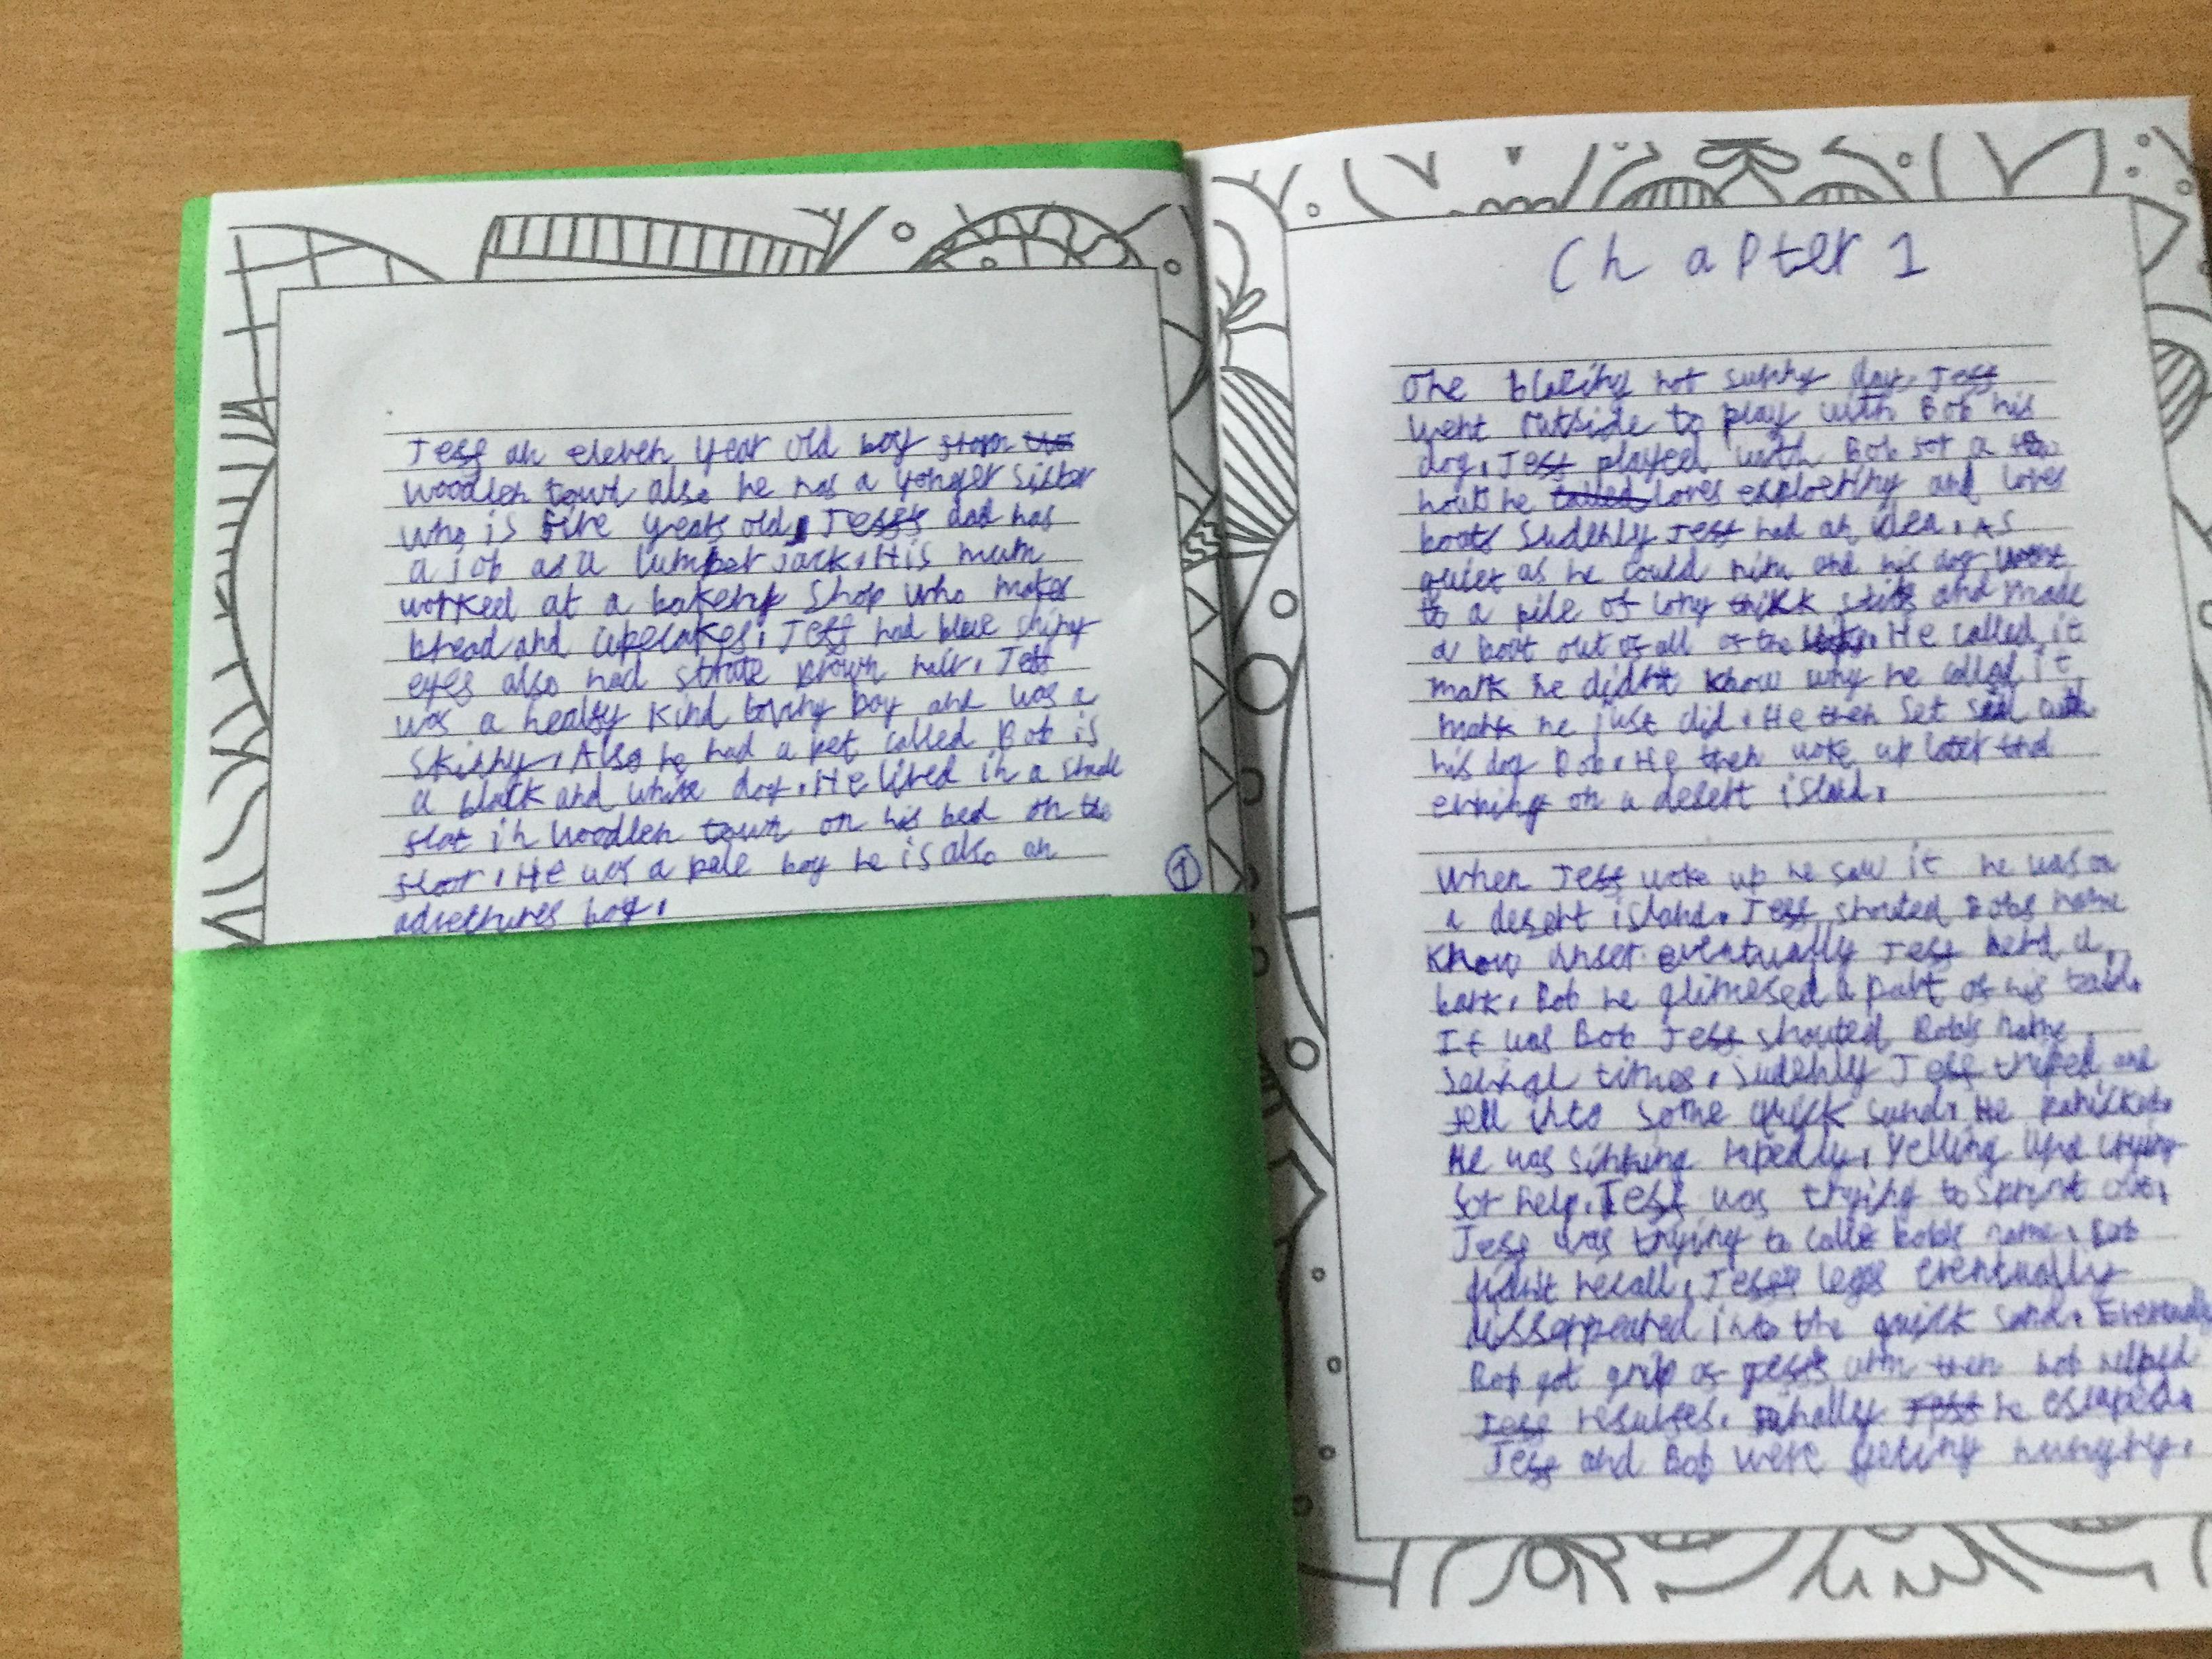 Jess an eleven year old boy from
woodlen town also he has a yonger sister
who is five years old, Jess's dad has
a job as a lumber jack. His mum
worked at a bakery shop who makes
bread and cupcakes. Jess had blue shiny
eyes also had strate brown hair. Jess
was a healfy kind loving boy and was a
skinny. Also he had a pet called Bob is
a black and white dog. He lived in a
flat in woodlen town on his bed on the
floor. He was a pale boy he is also an
adventures boy.
1
Chapter 1
One blazing hot sunny day. Jess
went outside to play with Bob his
dog. Jess played with Bob for a
hours he loves exploering and loves
boats sudenly Jess had an idea. As
quiet as he could him and his dog went
to a pile of long thick and made
a boat out of all of the He called it
mark he didn't know why he called it
mark he just did. He then set sail with
his dog Bob. He then woke up later that
evning on a desert island.
When Jess woke up he saw it he was on
a desert island. Jess shouted Bobs name
know anser eventually Jess herd a
bark. Bob he glimesed a part of his tail.
It was Bob Jess shouted Bob's name
times. sudenly Jess triped and
fell into some quick sand. He panicked.
He was sinking rapedly. Yelling and crying
for help. Jess was trying to sprint out.
Jess was trying to call bobs name. Bob
didn't recall. Jess's legs eventually
dissappeared into the quick sand. Eventually
Bob got grip of Jess's arm then bob helped
Jess finally he escaped.
Jess and Bob were geting hungry.